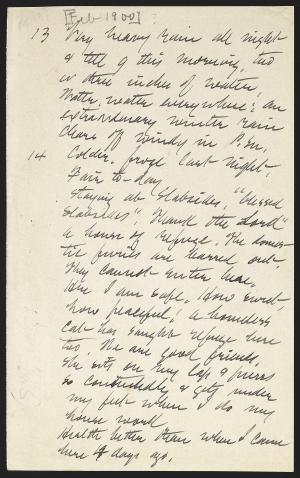 [Feb 1900]
13 Very heavy rain all night
& till 9 this morning, two
or three inches of water,
Water, water everywhere; an
extraordinary winter rain
Clear & windy in P.M.
14 Colder, froze last night.
Fair to-day
Staying at Slabsides, "blessed
Slabsides", Thank the Lord"
a house of refuge. The domes-
tic furies are barred out.
They cannot enter here.
Here I am safe. How sweet,
how peaceful; a homeless
cat has sought refuge here
too. We are good friends.
She sits on my lap & purrs
so contentedly & gets under
my feet when I do my
house work.
Health better than when I came
here 4 days ago.